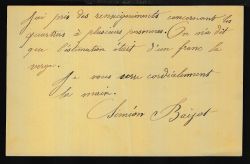 J'ai pris des renseignements concernant les
quartiers à plusieurs personnes. On m'a dit
que l'estimation était d'un franc la
verge.
Je vous serre cordialement
la main.
Siméon